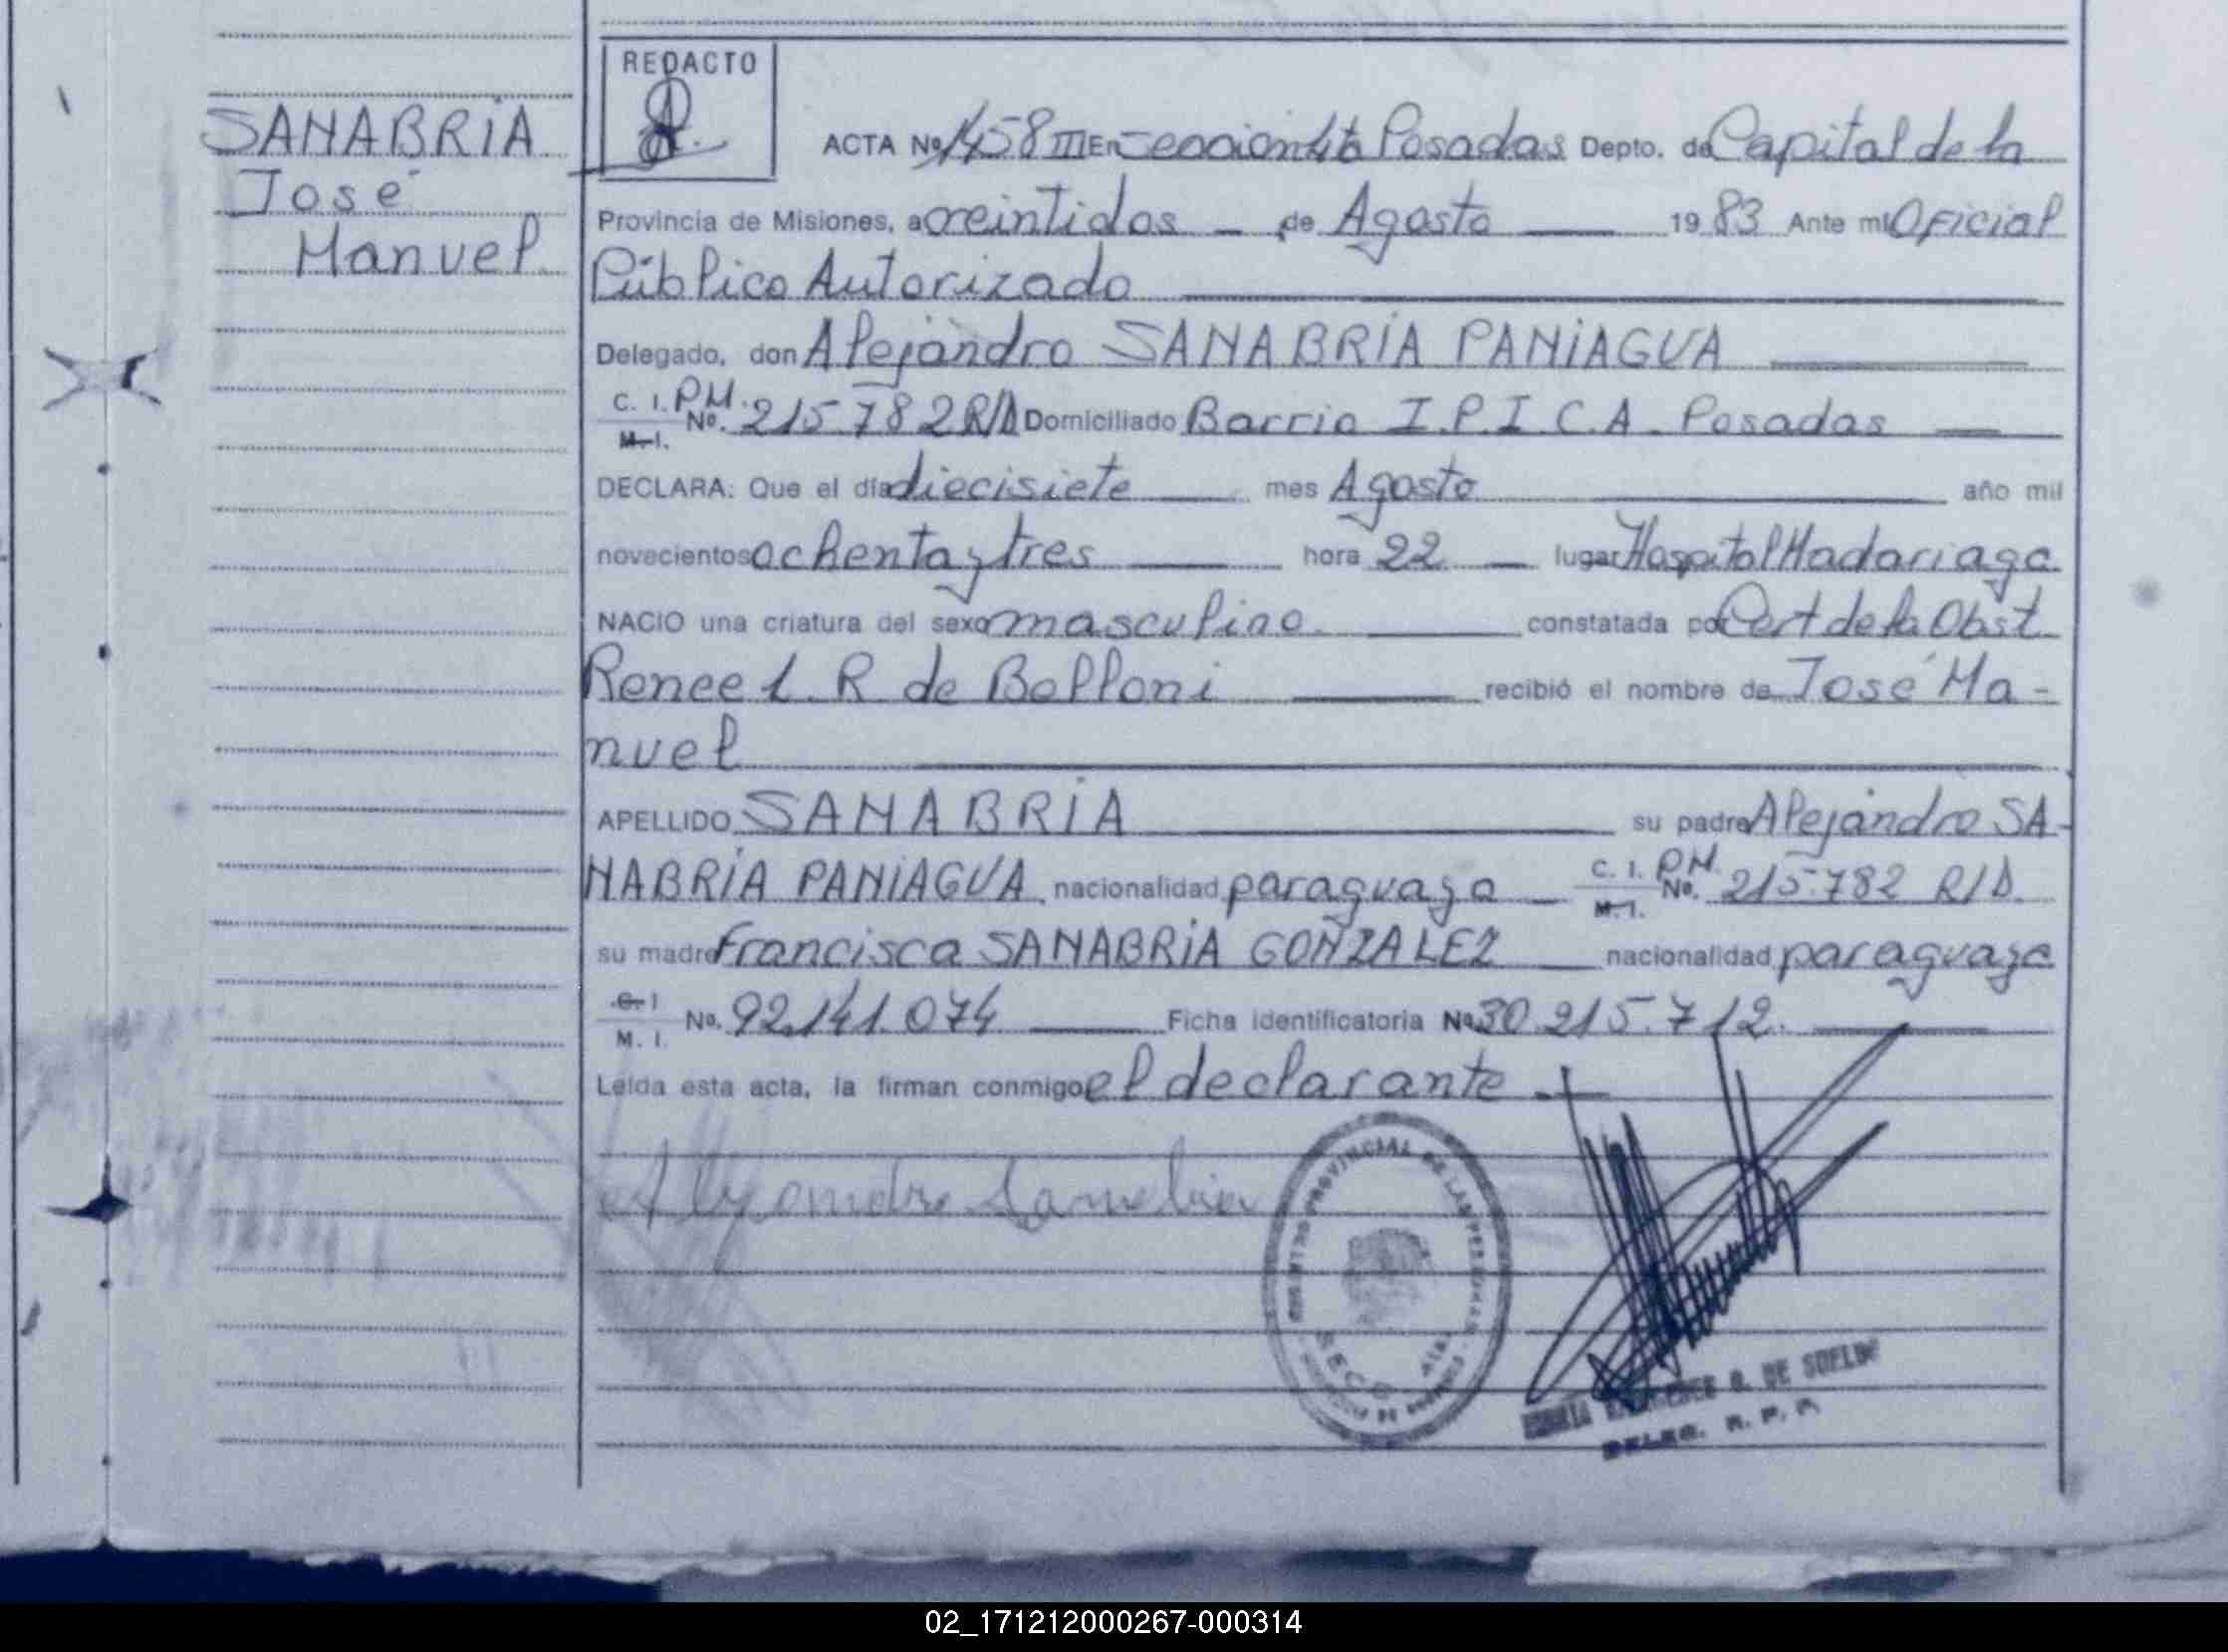 SANABRIA
José
Manuel
REDACTO
ACTA Nº 1458 III En Sección 4ta Posadas Depto. de Capital de la
Provincia de Misiones, a veintidos de Agosto 1983 Ante mi Oficial
Público Autorizado
Delegado, don Alejandro SANABRIA PANIAGUA
C. I. P.M.
M. I. No. 215.782 R/D Domiciliado Barrio I.P.I.C.A. Posadas
DECLARA: Que el día diecisiete mes Agosto año mil
novecientos ochenta y tres hora 22 lugar Hospital Madariaga
NACIO una criatura del sexo masculino constatada por Cert de la Obst
Renee L. R de Belloni recibió el nombre de José Ma-
nuel
APELLIDO SANABRIA su padre Alejandro SA-
NABRIA PANIAGUA nacionalidad paraguaya C. I. P.M. M. I. No. 215.782 R/D.
su madre Francisca SANABRIA GONZALEZ nacionalidad paraguaya
C. I
M. I. No. 92.141.074 Ficha identificatoria Nº 30.215.712.
Leída esta acta, la firman conmigo el declarante
Alejandro Sanabria
PROVINCIAL DE LAS PERSONAS
DE SOELDE
DELEG. R. P. P.
02_171212000267-000314